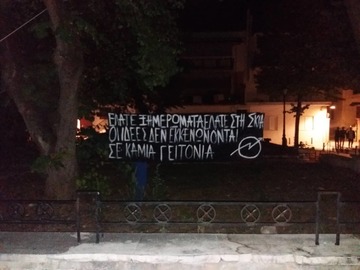 ΕΛΑΤΕ ΞΗΜΕΡΩΜΑΤΑ ΕΛΑΤΕ ΣΤΗ ΣΚΙΑ
ΟΙ ΙΔΕΕΣ ΔΕΝ ΕΚΚΕΝΩΝΟΝΤΑΙ
ΣΕ ΚΑΜΙΑ ΓΕΙΤΟΝΙΑ